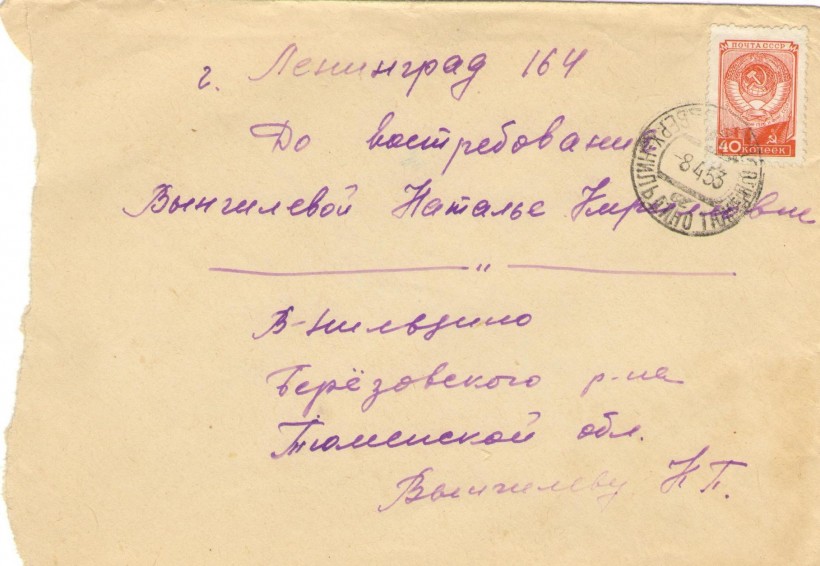 г. Ленинград 164
До востребования
Вынгилевой Наталье Кирилловне
"
В-Нильдино
Берёзовского р-на
Тюменской обл.
Вынгилеву К П.
ПОЧТА СССР
40 КОПЕЕК
-8 4 53